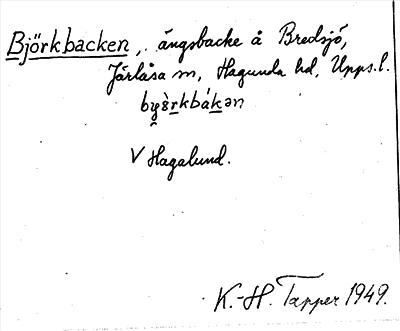 Björkbacken, ängsbacke å Bredsjö,
Järlåsa sn, Hagunda hd, Upps.l.
V Hagalund.
K.-H. Tapper 1949.